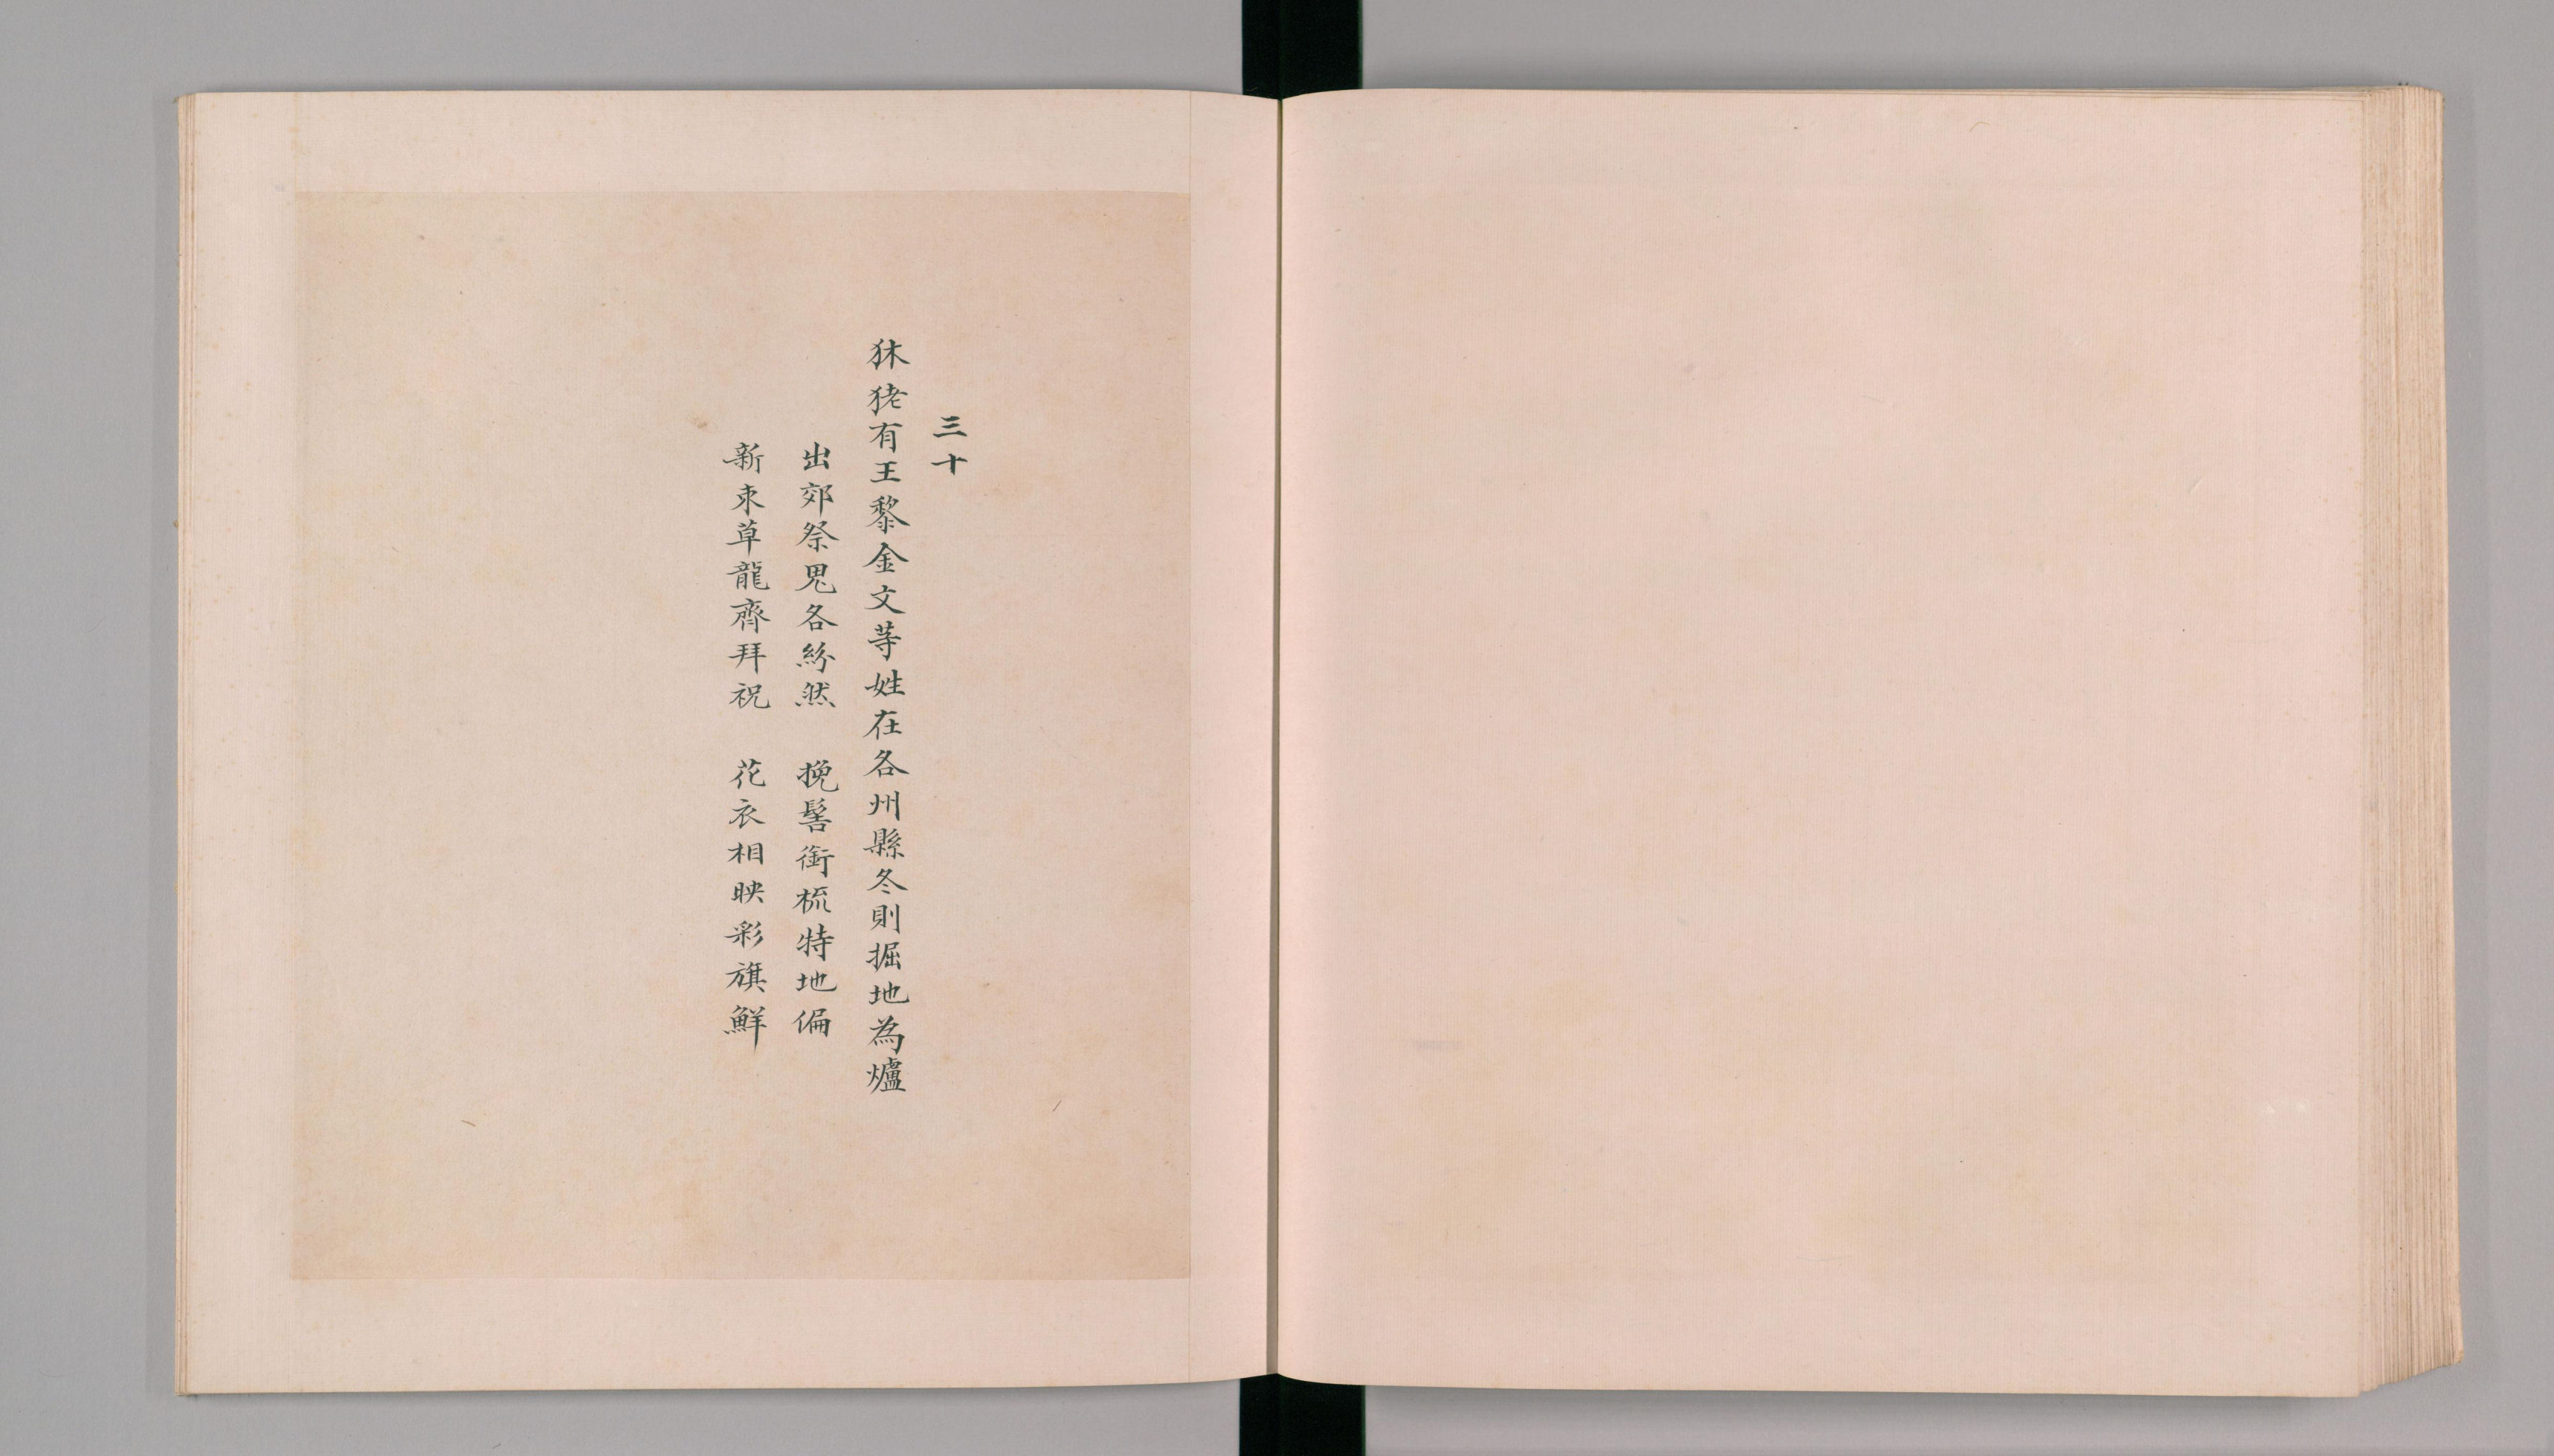 三十
狇狫有王黎金文等姓在各州縣冬則掘地為爐
出郊祭鬼各紛然　挽髻銜梳特地偏
新束草龍齊拜祝　花衣相映彩旗鮮